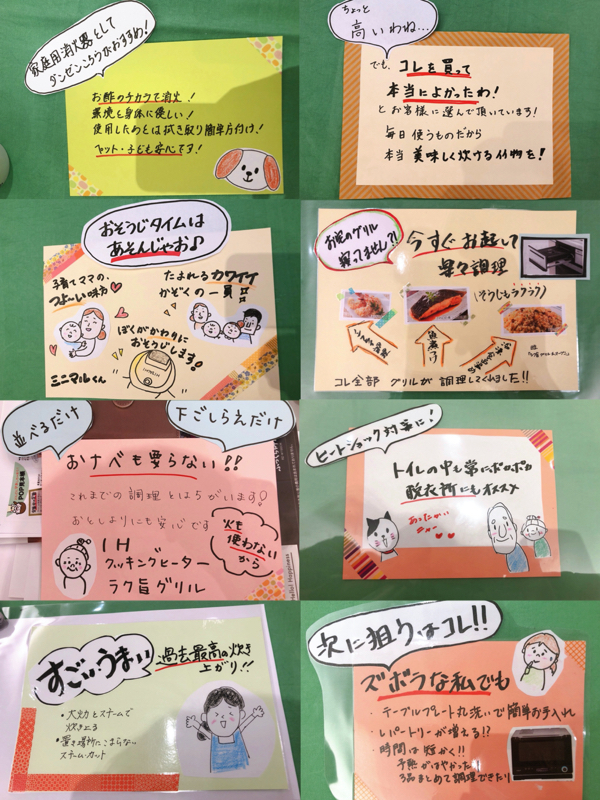 家庭用消火器として
ダンゼンこちらがおすすめ!
お酢のチカラで消火!
環境と身体に優しい!
使用したあとは拭き取り簡単片付け!
ペット・子ども安心です!
ちょっと
高いわね…
でも、コレを買って
本当によかったわ!
とお客様に選んで頂いています!
毎日使うものだから
本当美味しく炊ける1物を!
おそうじタイムは
あそんじゃお♪
子育てママの、
つよ〜い味方
たよれるカワイイ
かぞくの一員
ぼくがかわりに
おそうじします!
ミニマルくん
お宅のグリル
眠ってません?!
今すぐお起して
楽々調理
(そうじもラクラク)
コレ全部グリルが調理してくれました!!
並べるだけ
下ごしらえだけ
おナベも要らない!!
これまでの調理とはちがいます!
おとしよりにも安心です
火も
使わない
から
IH
クッキングヒーター
ラク旨グリル
ヒートショック対策に!
トイレの中も常にポカポカ
脱衣所にもオススメ
あったかい
ニャー
すごいうまい
過去最高の炊き
上がり!!
・大火力とスチームで
炊き上る
・置き場所にこまらない
スチームカット
次に狙うはコレ!!
ズボラな私でも
・テーブルプレート丸洗いで簡単お手入れ
・レパートリーが増える!?
・時間は短かく!!
予熱がはやかったり
3品まとめて調理できたり